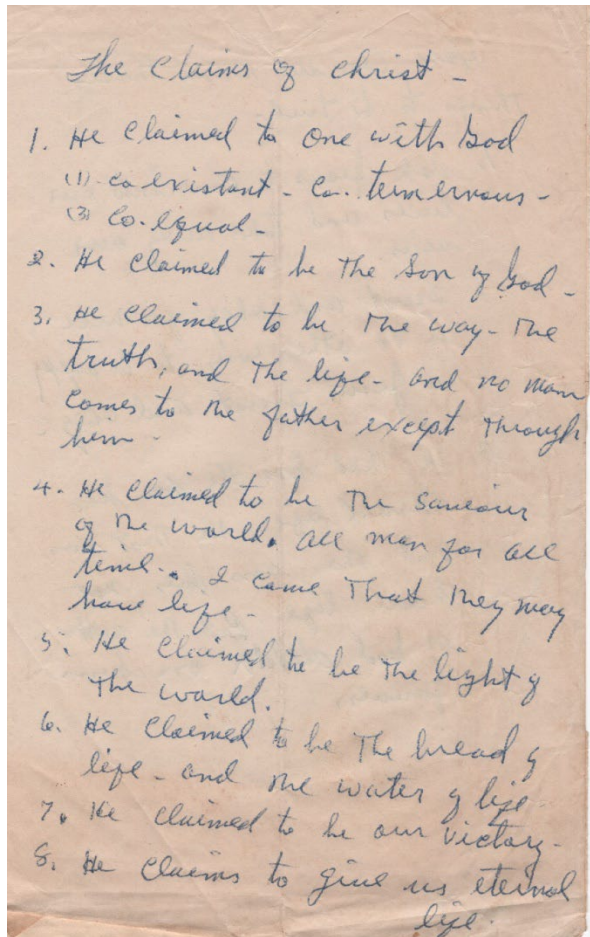 The Claims of Christ -
1. He Claimed to One with God
(1) - co existant - Co. termernous -
(3) Co. equal -
2. He Claimed to be The Son of God -
3. He Claimed to be The way - The
truth, and The life - and no man
Comes to The father except Through
him -
4. He Claimed to be The Saviour
of The world. All man for all
time. I came That They may
have life -
5. He Claimed to be The light of
The world.
6. He Claimed to be The bread of
life - and The water of life
7. He claimed to be our Victory -
8. He Claims to give us eternal
life.